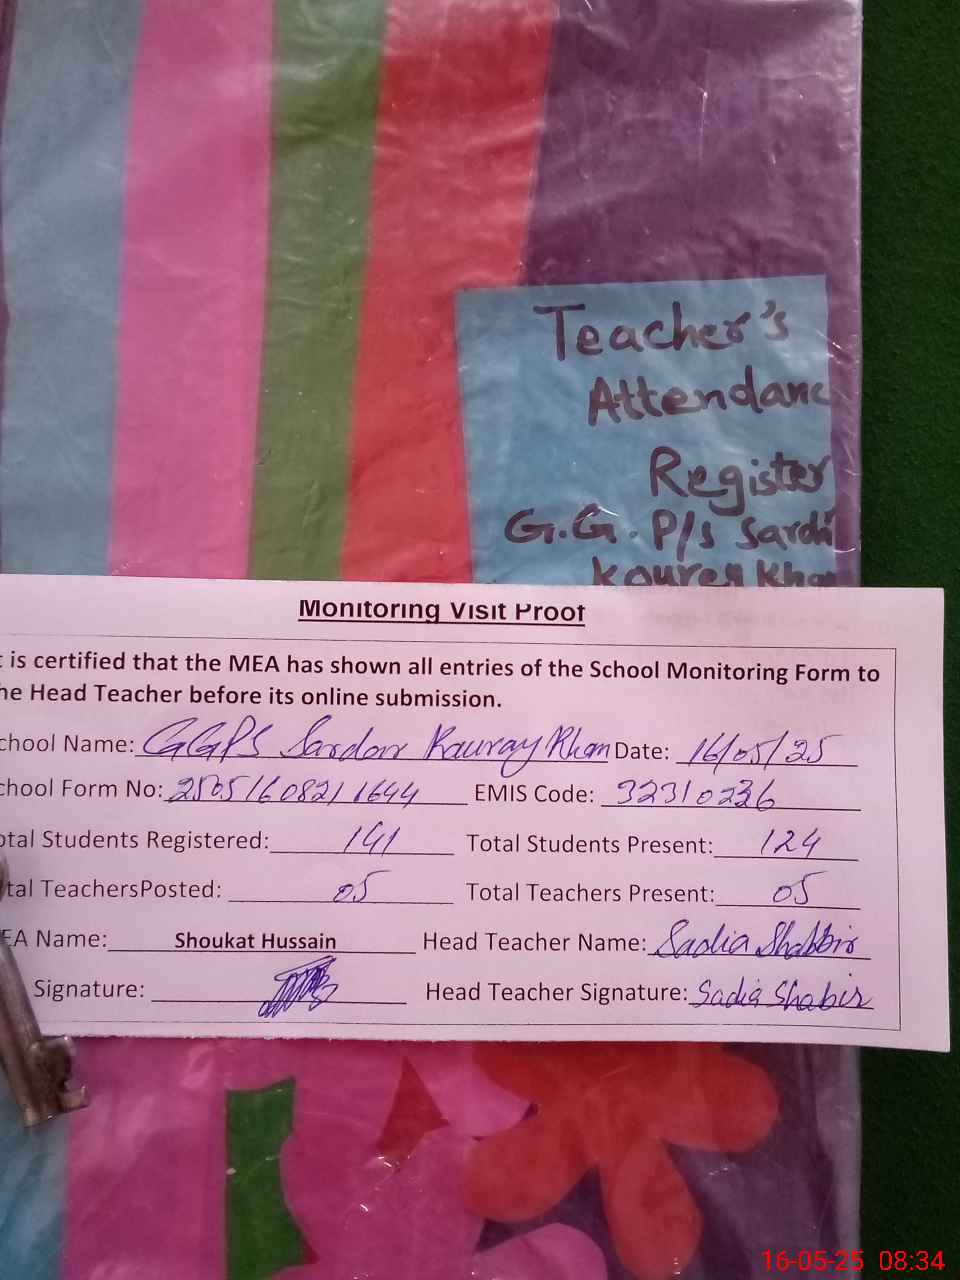 Teacher's
Attendanc
Register
G.G. P/s Sard
Kourey Kha
Monitoring Visit Proof
t is certified that the MEA has shown all entries of the School Monitoring Form to
he Head Teacher before its online submission.
chool Name: GGPS Sardar Kauray Khan Date: 16/05/25
chool Form No: 2505160821 1644 EMIS Code: 32310236
otal Students Registered: 141 Total Students Present: 124
tal TeachersPosted: 05 Total Teachers Present: 05
EA Name: Shoukat Hussain Head Teacher Name: Sadia Shabbir
Signature: Head Teacher Signature: Sadia Shabir
16-05-25 08:34